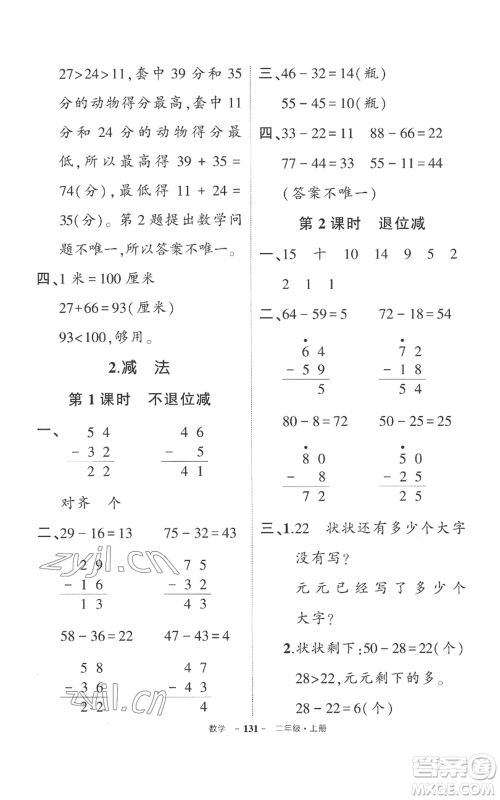 27>24>11,套中 39 分和 35
分的动物得分最高,套中 11
分和 24 分的动物得分最
低,所以最高得 39 + 35 =
74(分),最低得 11 + 24 =
35(分)。第 2 题提出数学问
题不唯一,所以答案不唯一。
四、1 米 = 100 厘米
27+66=93(厘米)
93<100,够用。
2.减 法
第 1 课时 不退位减
一、 5 4    4 6
- 3 2    - 5
2 2    4 1
对齐 个
二、29-16=13 75-32=43
2 9    7 5
- 1 6    - 3 2
1 3    4 3
58-36=22 47-43=4
5 8    4 7
- 3 6    - 4 3
2 2    4
三、46-32=14(瓶)
55-45=10(瓶)
四、33-22=11 88-66=22
77-44=33 55-11=44
(答案不唯一)
第 2 课时 退位减
一、15 十 10 14 9 5 2
2 1 1
二、64-59=5 72-18=54
6 4    7 2
- 5 9    - 1 8
5    5 4
80-8=72 50-25=25
8 0    5 0
- 8    - 2 5
7 2    2 5
三、1.22 状状还有多少个大字
没有写?
元元已经写了多少个
大字?
2.状状剩下:50-28=22(个)
28>22,元元剩下的多。
28-22=6(个)
数学 - 131 - 二年级·上册
zyjl.cn
zyjl.cn
作业精灵